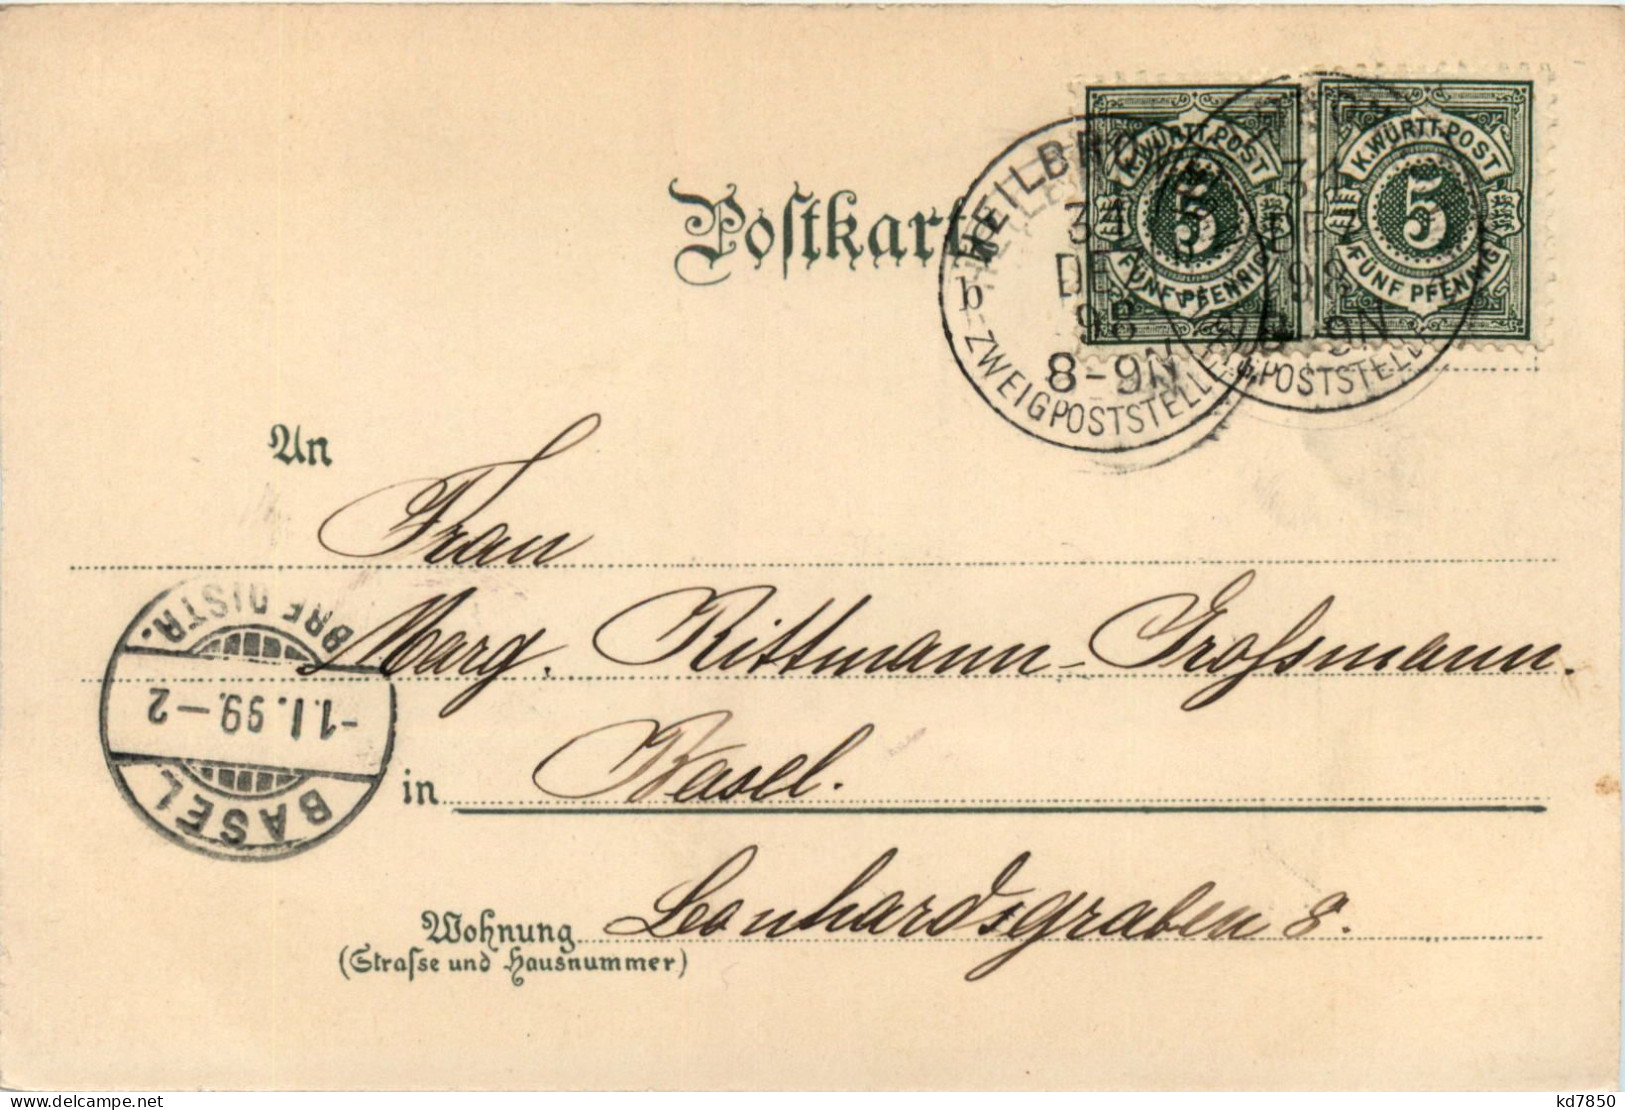 Postkarte
K.WÜRTT.POST
5
FÜNF PFENNIG
K.WÜRTT.POST
5
FÜNF PFENNIG
HEILBRO
b
31
DEZ
98
8-9N
ZWEIGPOSTSTELLE
31
DEZ
98
8-9N
ZWEIGPOSTSTELLE
An
Frau
Marg. Rittmann-Grossmann.
in Basel.
Wohnung Leonhardsgraben 8.
(Strasse und Hausnummer)
BRF DISTR.
-1.I.99.-2
BASEL
kd7850